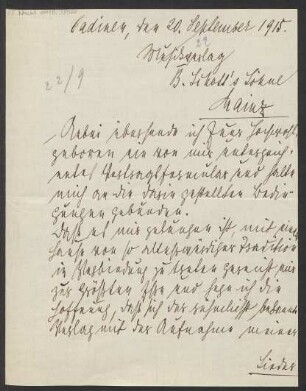 Cadinen, den 20. September 1915.
Musikverlag
B. Schott's Söhne
Mainz
22/9
Anbei übersende ich Euer Hochwohl-
geboren ein von mir unterzeich-
netes Vertragsformular und halte
mich an die darin gestellten Bedin-
gungen gebunden.
Daß es mir gelungen ist, mit einem
Hause von so altehrwürdiger Tradition
in Verbindung zu treten gereicht mir
zur größten Ehre und hege ich die
Hoffnung, daß sich der rühmlichst bekannte
Verlag mit der Aufnahme meiner
Lieder